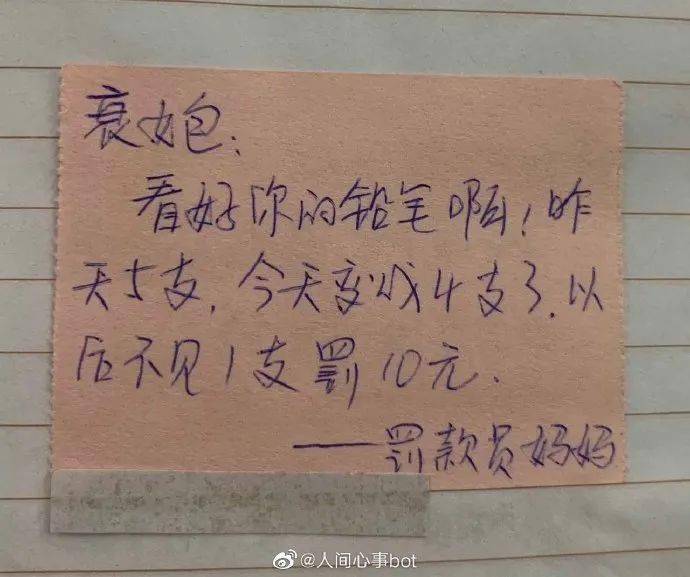 衰女包：
看好你的铅笔啊！昨
天5支，今天变成4支了.以
后不见1支罚10元.
——罚款员妈妈
@人间心事bot